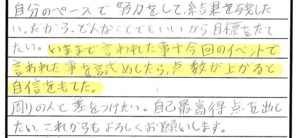 自分のペースで努力をして、結果を残した
い。だから、どんなことでもいいから目標をたて
たい。いままで言われた事+今回のイベントで
言われた事を改めしたら、点数が上がると
自信をもてた。
周りの人と差をつけたい。自己最高得点を出し
たい。これからもよろしくお願いします。